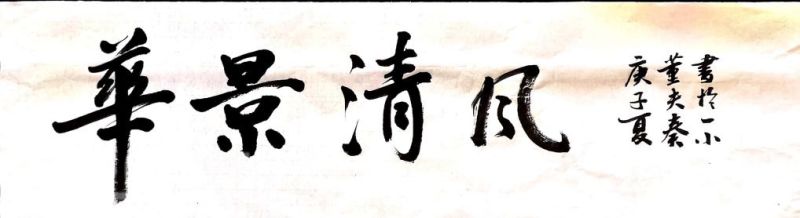 華景清风
庚子夏
董夫奏
書於一小